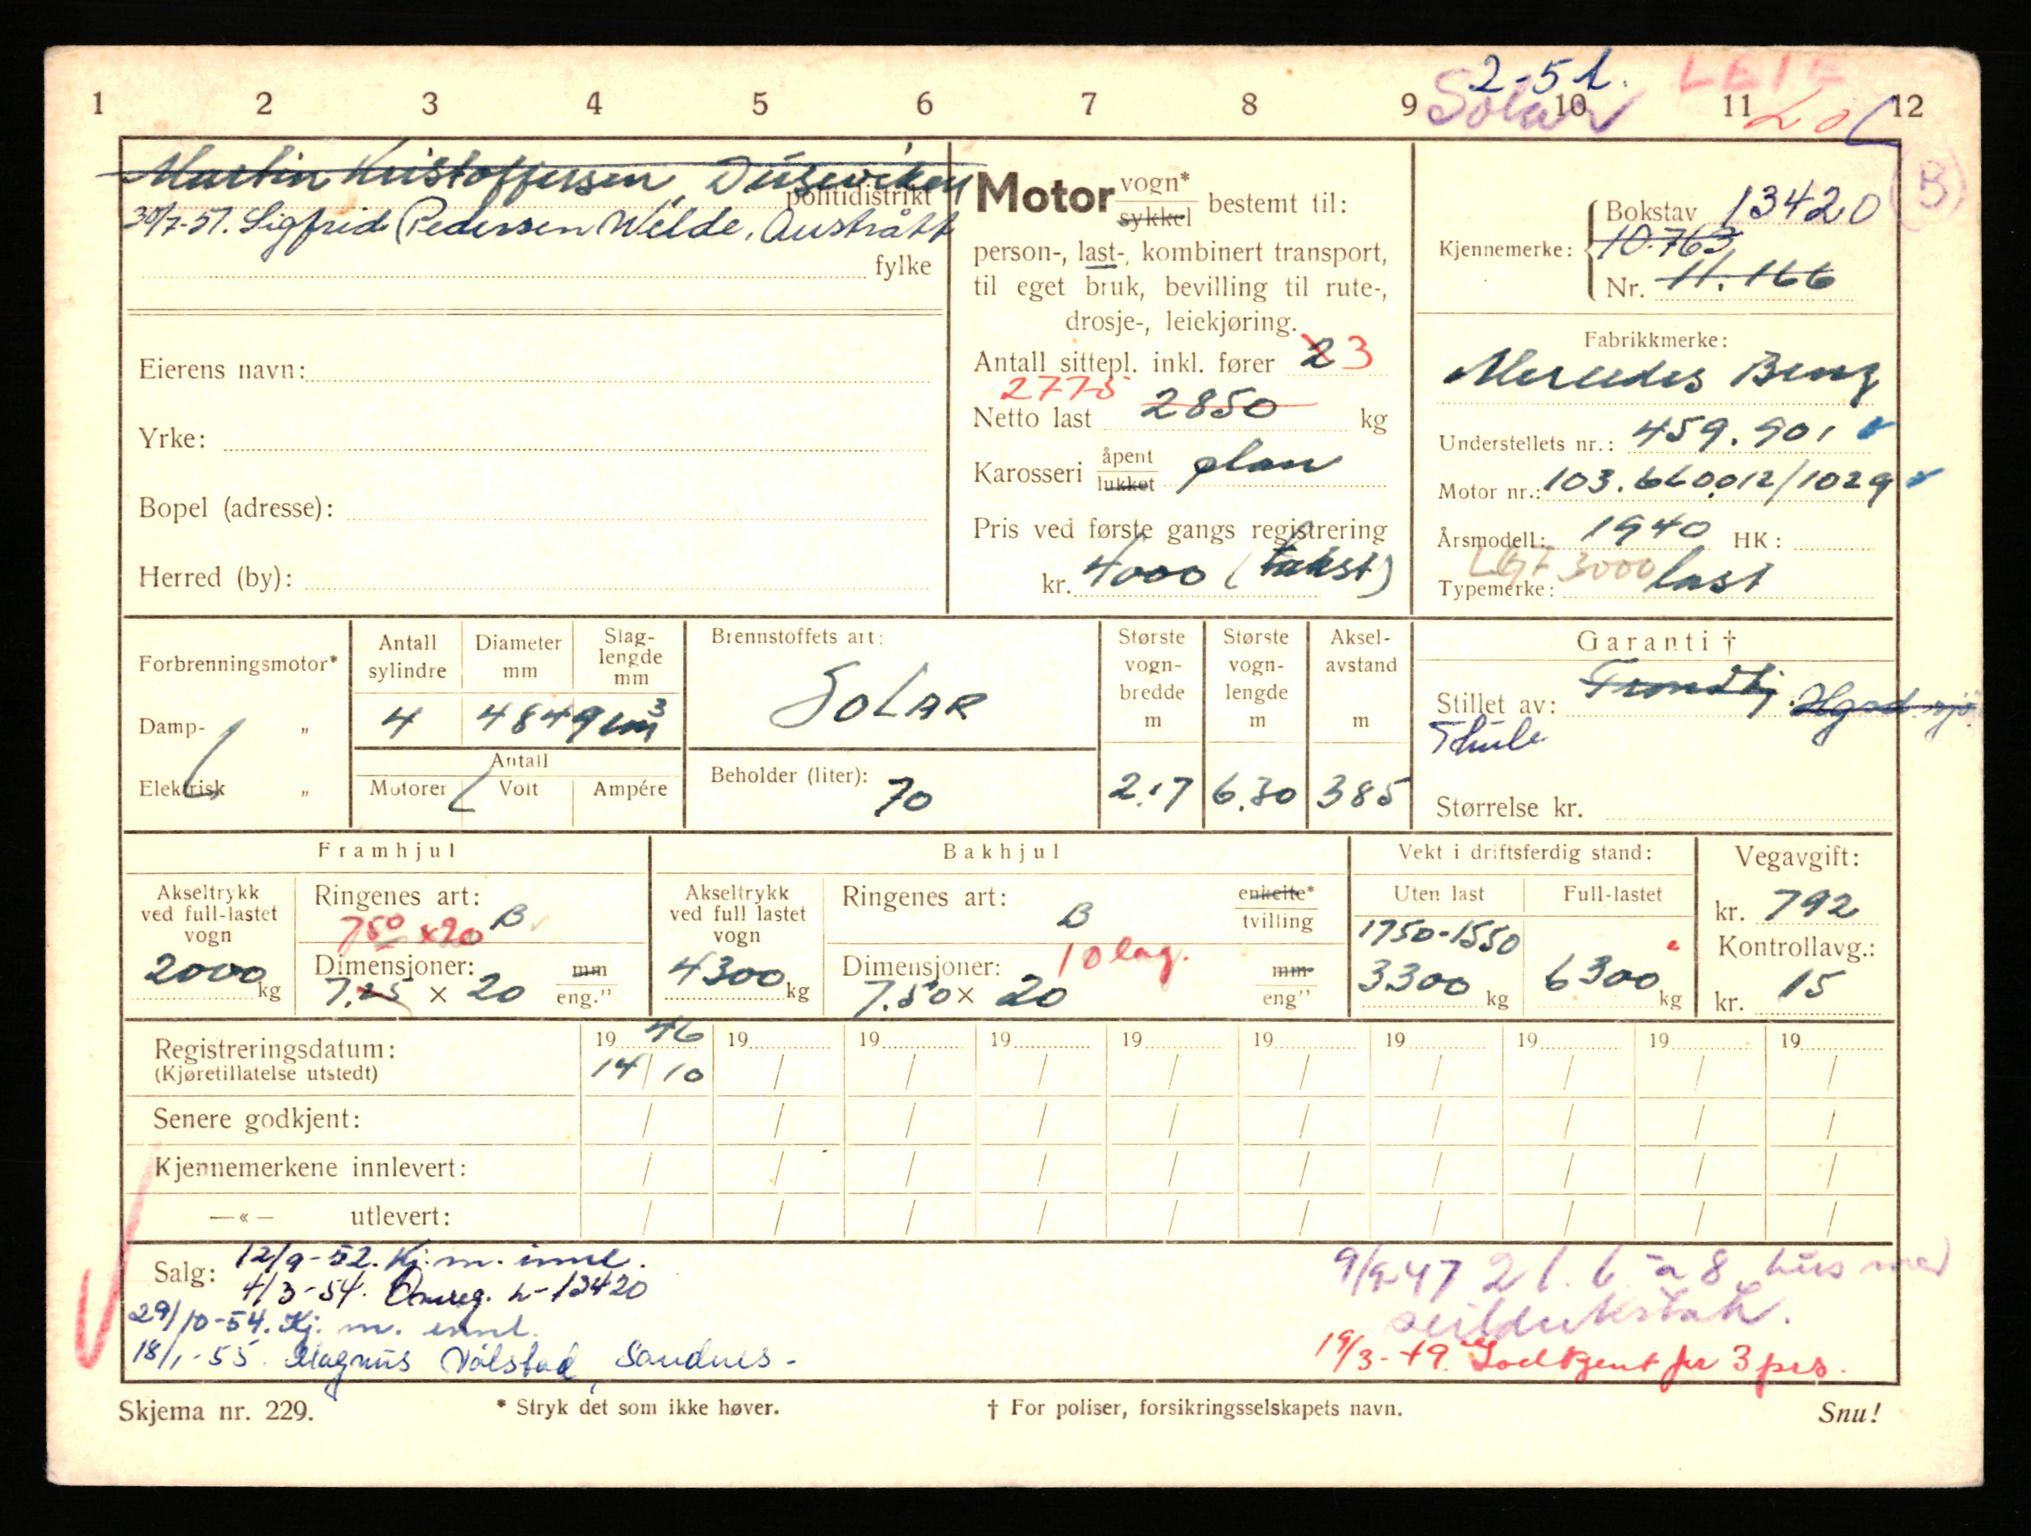 2-51. LEIE
1 2 3 4 5 6 7 8 9 Solar 10 11 20 12
Martin Kristoffersen, Duseviken
politidistrikt
30/7-51. Sigfrid Pedersen Welde, Austrått
fylke
Eierens navn:
Yrke:
Bopel (adresse):
Herred (by):
Motor vogn* sykkel bestemt til:
person-, last-, kombinert transport,
til eget bruk, bevilling til rute-,
drosje-, leiekjøring.
Antall sittepl. inkl. fører 2 3
2775
Netto last 2850 kg
Karosseri åpent lukket plan
Pris ved første gangs registrering
kr. 4000 (takst)
B
Kjennemerke: Bokstav 13420
10.763
Nr. 11.166
Fabrikkmerke:
Mercedes Benz
Understellets nr.: 459.901
Motor nr.: 103.660012/1029
Årsmodell: 1940 HK:
LGF 3000
Typemerke: last
Forbrenningsmotor*
Damp- „
Elektrisk „
Antall sylindre
4
Diameter mm
Slaglengde mm
4849 cm³
Antall
Motorer Volt Ampére
Brennstoffets art:
SOLAR
Beholder (liter): 70
Største vogn-bredde m
2.17
Største vogn-lengde m
6.30
Aksel-avstand m
385
Garanti †
Stillet av: Trondhj.
Thule
Størrelse kr.
Framhjul
Akseltrykk ved full-lastet vogn
2000 kg
Ringenes art: B
750 x20
Dimensjoner: mm
7.25 × 20 eng."
Bakhjul
Akseltrykk ved full lastet vogn
4300 kg
Ringenes art: B enkelte* tvilling
10 lag.
Dimensjoner: mm
7.50 × 20 eng"
Vekt i driftsferdig stand:
Uten last Full-lastet
1750-1550
3300 kg 6300 kg
Vegavgift:
kr. 792
Kontrollavg.:
kr. 15
Registreringsdatum: 1946 19 19 19 19 19 19 19 19 19
(Kjøretillatelse utstedt) 14/10 / / / / / / / / /
Senere godkjent: / / / / / / / / / /
Kjennemerkene innlevert: / / / / / / / / / /
—«— utlevert: / / / / / / / / / /
Salg: 12/9-52. Kj.m. innl.
4/3-54. Omreg. L-13420
29/10-54. Kj. m. innl.
18/1-55. Magnus Vålstad, Sandnes -
9/9-47 21. 6 à 8 hus med
seilduktak.
19/3-49. Godkjent for 3 prs.
Skjema nr. 229. * Stryk det som ikke høver. † For poliser, forsikringsselskapets navn. Snu!